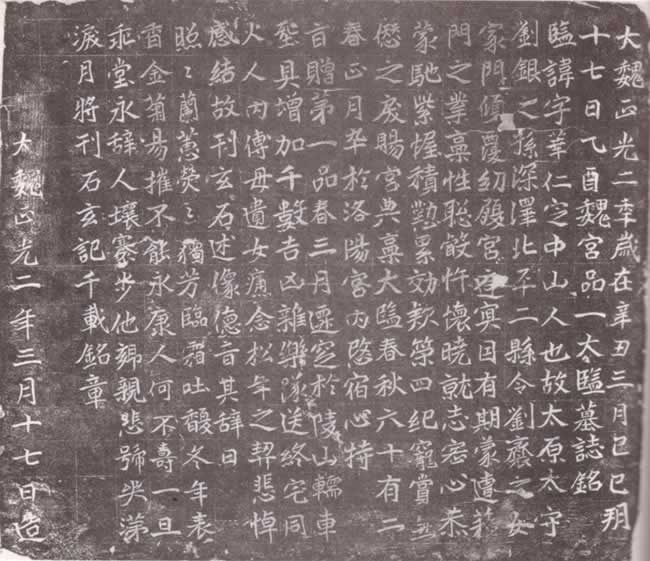 大魏正光二年歲在辛丑三月己巳朔
十七日乙酉魏宮品一太監墓誌銘
監諱字華仁定中山人也故太原太守
劉銀之孫深澤北平二縣令劉齋之女
家門傾覆幼履宮庭冥因有期蒙遭
門之業稟性聰敏忤懷曉就志密心恭
蒙馳紫幄積懃累効款策四紀寵賞無
愆之戾賜宮典稟大監春秋六十有二
春正月卒於洛陽宮內陰宿心持
旨贈第一品春三月遷窆於陵山轜車
聖具增加千數吉凶雜樂隊送終宅同
火人內傅母遺女痛念松年之契悲悼
感結故刊玄石述像德音其辭曰
照照蘭蕙熒熒獨芳臨霜吐馥冬年表
香金菊昜摧不能永康人何不壽一旦
乖堂永辞人壤寒步他鄉親悲號哭涕
淚月將刊石玄記千載銘章
大魏正光二年三月十七日造